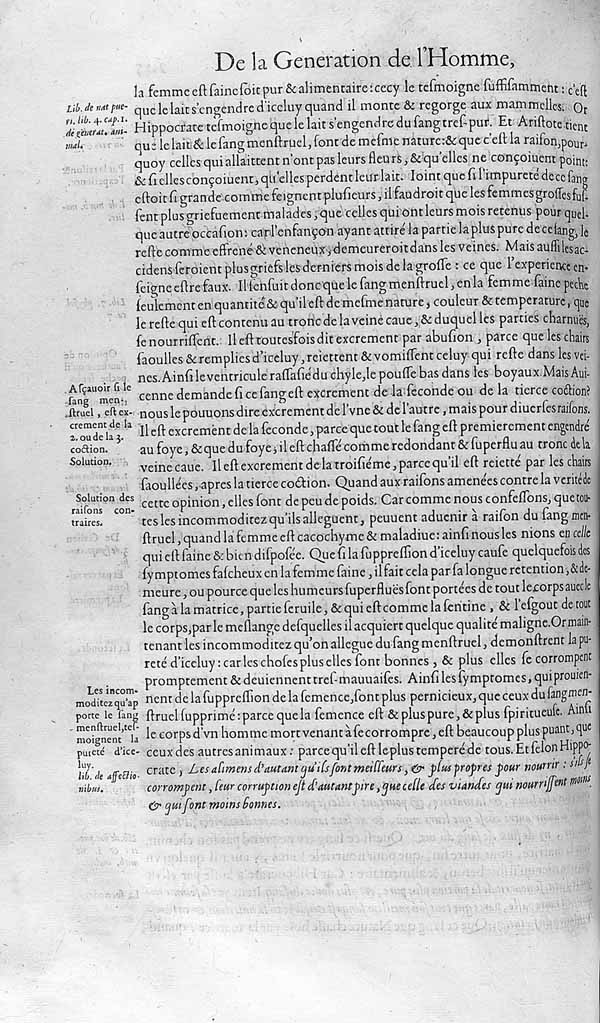 De la Generation de l'Homme,
la femme est saine soit pur & alimentaire: cecy le tesmoigne suffisamment: c'est
que le lait s'engendre d'iceluy quand il monte & regorge aux mammelles. Or
Hippocrate tesmoigne que le lait s'engendre du sang tres-pur. Et Aristote tient
que le lait & le sang menstruel, sont de mesme nature: & que c'est la raison, pour-
quoy celles qui allaittent n'ont pas leurs fleurs, & qu'elles ne conçoiuent point:
& si elles conçoiuent, qu'elles perdent leur lait. Ioint que si l'impureté de ce sang
estoit si grande comme feignent plusieurs, il faudroit que les femmes grosses fus-
sent plus griefuement malades, que celles qui ont leurs mois retenus pour quel-
que autre occasion: car l'enfançon ayant attiré la partie la plus pure de ce sang, le
reste comme effrené & veneneux, demeureroit dans les veines. Mais aussi les ac-
cidens seroient plus griefs les derniers mois de la grosse: ce que l'experience en-
seigne estre faux. Il ensuit donc que le sang menstruel, en la femme saine peche
seulement en quantité & qu'il est de mesme nature, couleur & temperature, que
le reste qui est contenu au tronc de la veine caue, & duquel les parties charnuës,
se nourrissent. Il est toutesfois dit excrement par abusion, parce que les chairs
saoulles & remplies d'iceluy, reiettent & vomissent celuy qui reste dans les vei-
nes. Ainsi le ventricule rassasié du chyle, le pousse bas dans les boyaux. Mais Aui-
cenne demande si ce sang est excrement de la seconde ou de la tierce coction?
nous le pouuons dire excrement de l'vne & de l'autre, mais pour diuerses raisons.
Il est excrement de la seconde, parce que tout le sang est premierement engendré
au foye, & que du foye, il est chassé comme redondant & superflu au tronc de la
veine caue. Il est excrement de la troisiéme, parce qu'il est reietté par les chairs
saoullées, apres la tierce coction. Quand aux raisons amenées contre la verité de
cette opinion, elles sont de peu de poids. Car comme nous confessons, que tou-
tes les incommoditez qu'ils alleguent, peuuent aduenir à raison du sang men-
struel, quand la femme est cacochyme & maladiue: ainsi nous les nions en celle
qui est saine & bien disposée. Que si la suppression d'iceluy cause quelquefois des
symptomes fascheux en la femme saine, il fait cela par sa longue retention, & de-
meure, ou pource que les humeurs superfluës sont portées de tout le corps auec le
sang à la matrice, partie seruile, & qui est comme la sentine, & l'esgout de tout
le corps, par le meslange desquelles il acquiert quelque qualité maligne. Or main-
tenant les incommoditez qu'on allegue du sang menstruel, demonstrent la pu-
reté d'iceluy: car les choses plus elles sont bonnes, & plus elles se corrompent
promptement & deuiennent tres-mauuaises. Ainsi les symptomes, qui prouien-
nent de la suppression de la semence, sont plus pernicieux, que ceux du sang men-
struel supprimé: parce que la semence est & plus pure, & plus spiritueuse. Ainsi
le corps d'vn homme mort venant à se corrompre, est beaucoup plus puant, que
ceux des autres animaux: parce qu'il est le plus temperé de tous. Et selon Hippo-
crate, Les alimens d'autant qu'ils sont meilleurs, & plus propres pour nourrir: s'ils se
corrompent, leur corruption est d'autant pire, que celle des viandes qui nourrissent moins
& qui sont moins bonnes.
Lib. de nat pue-
ri. lib. 4. cap. 1.
de generat. ani-
mal.
Asçauoir si le
sang men-
struel, est ex-
crement de la
2. ou de la 3.
coction.
Solution.
Solution des
raisons con-
traires.
Les incom-
moditez qu'ap
porte le sang
menstruel, tes-
moignent la
pureté d'ice-
luy.
lib. de affectio-
nibus.